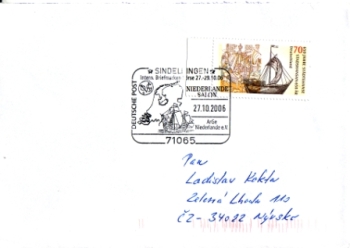 70
SINDELFINGEN
Intern. Briefmarkenbörse 27.-29.10.06
NIEDERLANDE
SALON
27.10.2006
DEUTSCHE POST
ArGe
Niederlande e.V.
71065
Pan
Ladislav Kokta
Zelená Lhota 113
CZ - 34022 Nýrsko